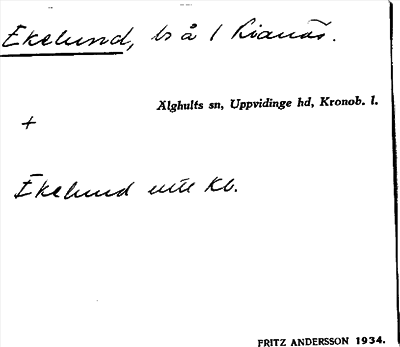 Ekelund, ls å 1 Lianäs.
Älghults sn, Uppvidinge hd, Kronob. l.
+
Ekelund utt Kb.
FRITZ ANDERSSON 1934.